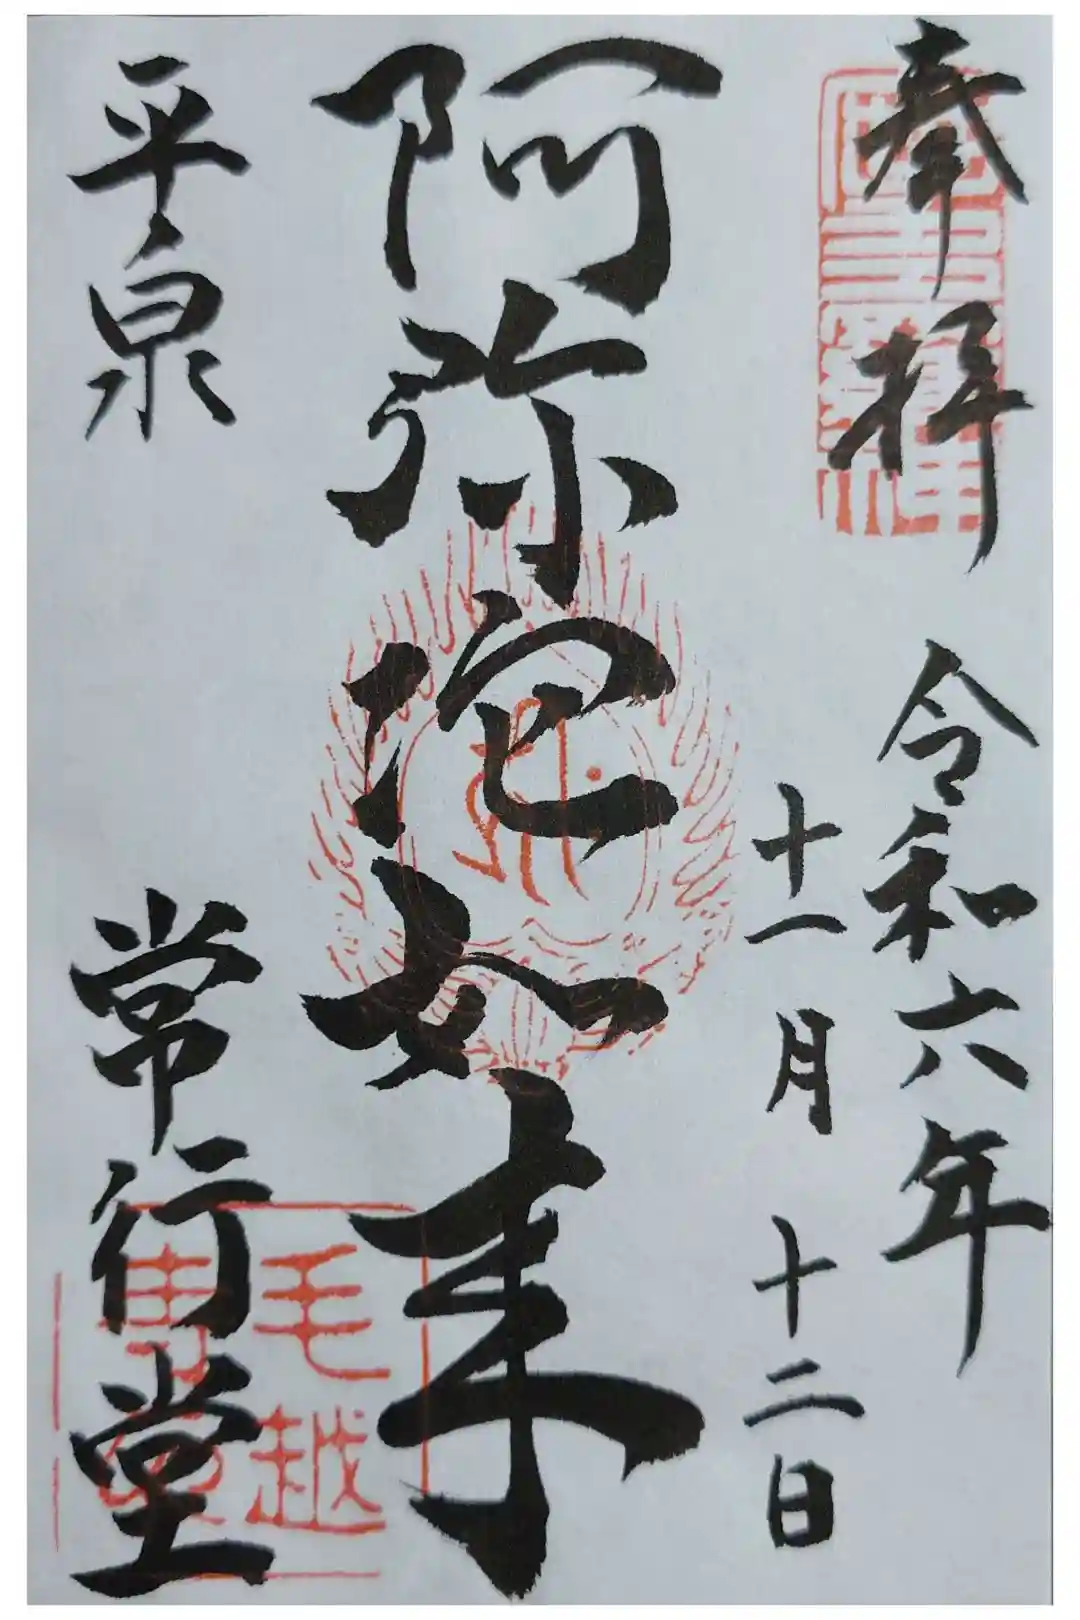 奉拝
令和六年
十一月十二日
阿弥陀如来
平泉
常行堂
毛越